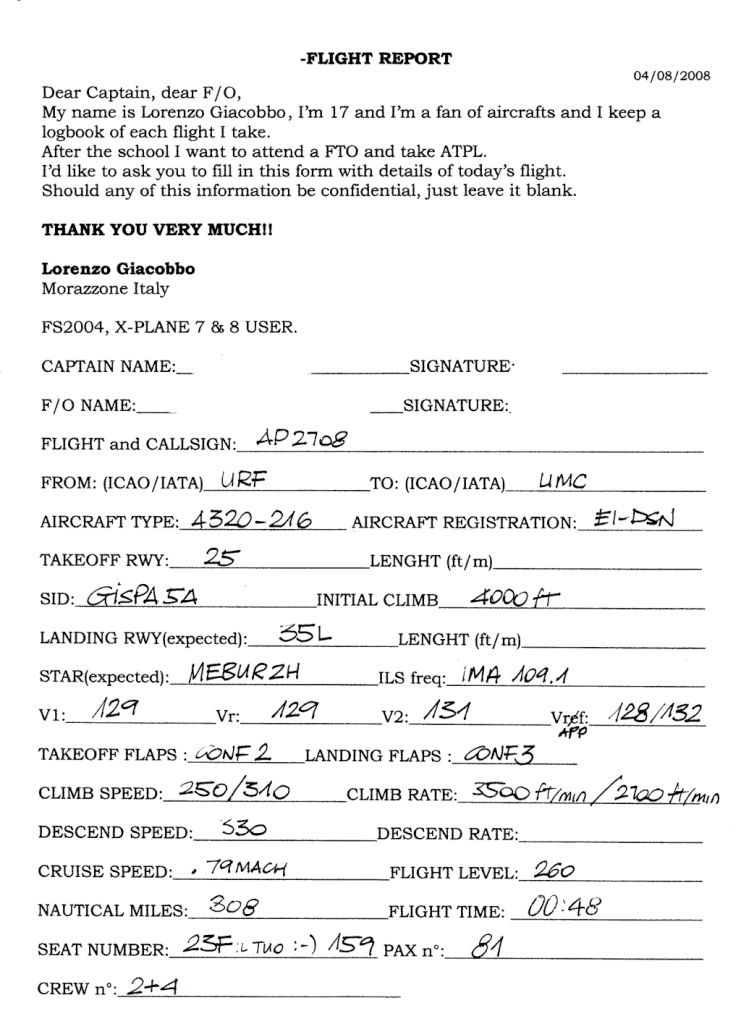 -FLIGHT REPORT
04/08/2008
Dear Captain, dear F/O,
My name is Lorenzo Giacobbo, I'm 17 and I'm a fan of aircrafts and I keep a
logbook of each flight I take.
After the school I want to attend a FTO and take ATPL.
I'd like to ask you to fill in this form with details of today's flight.
Should any of this information be confidential, just leave it blank.
THANK YOU VERY MUCH!!
Lorenzo Giacobbo
Morazzone Italy
FS2004, X-PLANE 7 & 8 USER.
CAPTAIN NAME: SIGNATURE
F/O NAME: SIGNATURE:
FLIGHT and CALLSIGN: AP2708
FROM: (ICAO/IATA) URF TO: (ICAO/IATA) UMC
AIRCRAFT TYPE: A320-216 AIRCRAFT REGISTRATION: EI-DSN
TAKEOFF RWY: 25 LENGHT (ft/m)
SID: GISPA 5A INITIAL CLIMB 4000 ft
LANDING RWY(expected): 35L LENGHT (ft/m)
STAR(expected): MEBUR2H ILS freq: IMA 109.1
V1: 129 Vr: 129 V2: 131 Vref: 128/132
APP
TAKEOFF FLAPS : CONF 2 LANDING FLAPS : CONF3
CLIMB SPEED: 250/310 CLIMB RATE: 3500 ft/min / 2700 ft/min
DESCEND SPEED: 330 DESCEND RATE:
CRUISE SPEED: .79 MACH FLIGHT LEVEL: 260
NAUTICAL MILES: 308 FLIGHT TIME: 00:48
SEAT NUMBER: 23F :IL TUO :-) 159 PAX n°: 81
CREW n°: 2+4